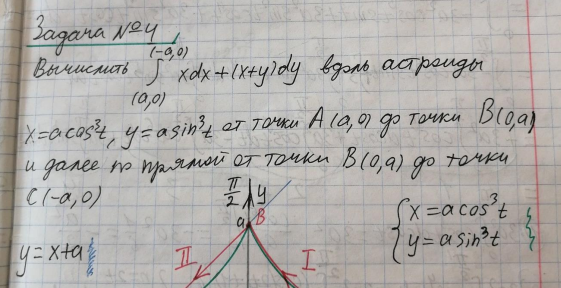 Задача №4
(-a,0)
Вычислить ∫ xdx+(x+y)dy вдоль астроиды
(a,0)
x=acos³t, y=asin³t от точки A(a,0) до точки B(0,a)
и далее по прямой от точки B(0,a) до точки
C(-a,0)
π/2 y
a B
y=x+a
II I
{x=acos³t
y=asin³t